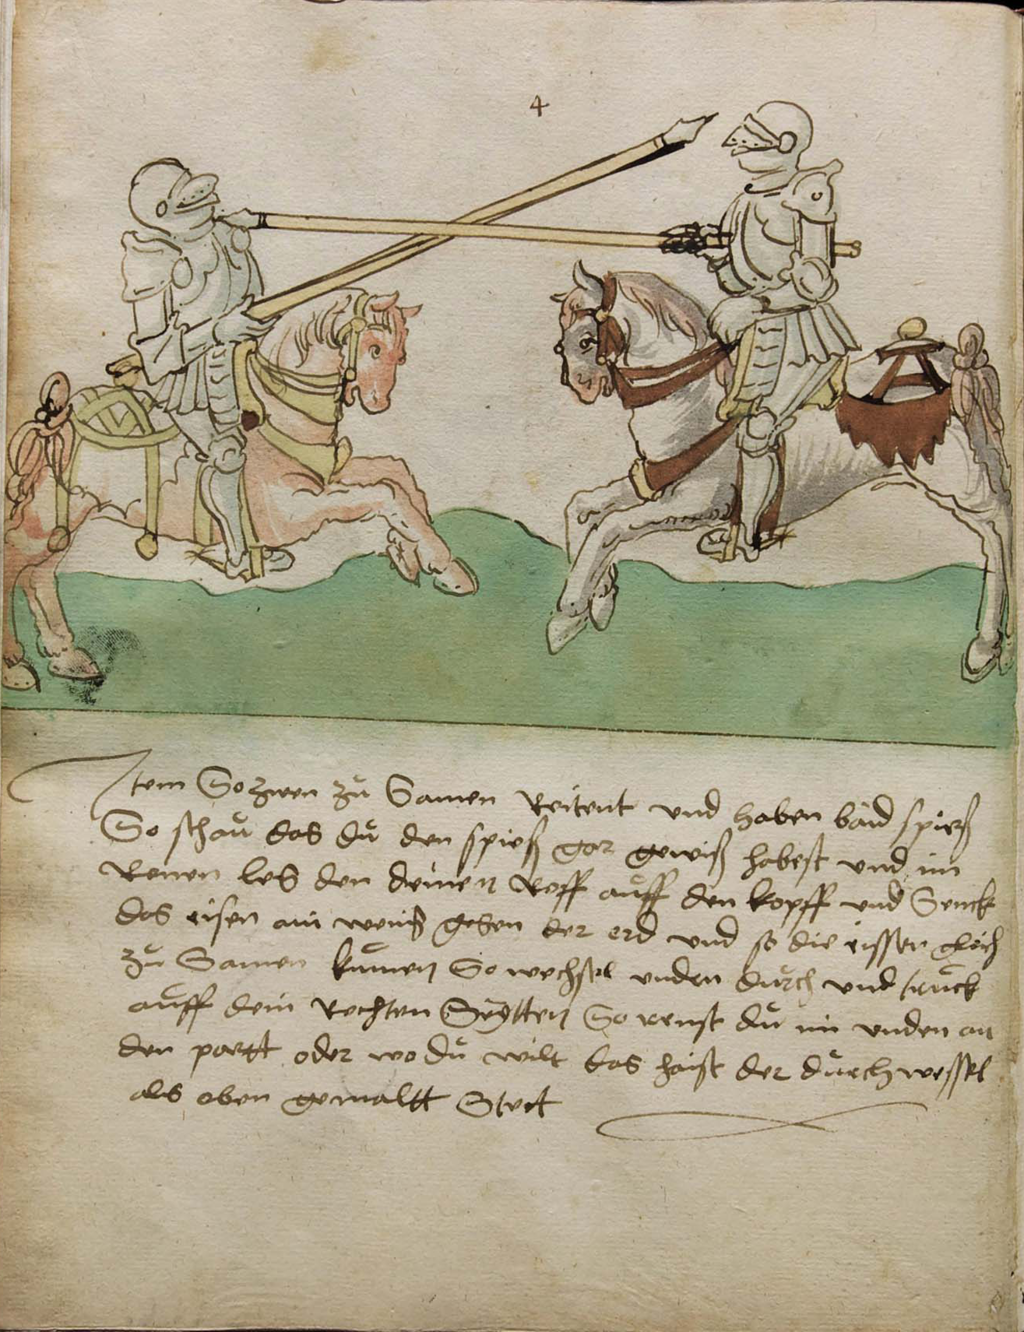 4
Item So zwen zů Samen Reitent vnd haben baid spieß
So schaů das dů den spieß gar gewiß habest vnd im
Renen leg den deinen Roff aůff den kopff vnd Senck
das eisen ain wenig gegen der erd vnd so die eissen gleich
zů Samen kůmen So wechsel vnden důrch vnd trůck
aůff dein Rechten Seÿtten So renst dů im vnden an
den part oder wo dů wilt das haist der důrch wessel
als oben gemaltt Stet